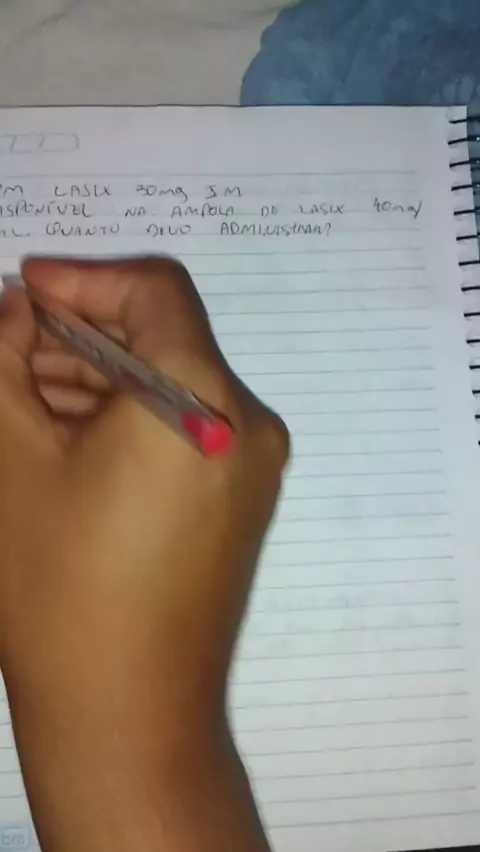 PM LASIX 30mg IM
ISPONÍVEL NA AMPOLA DE LASIX 40mg/
ML. QUANTO DEVO ADMINISTRAR?
bm